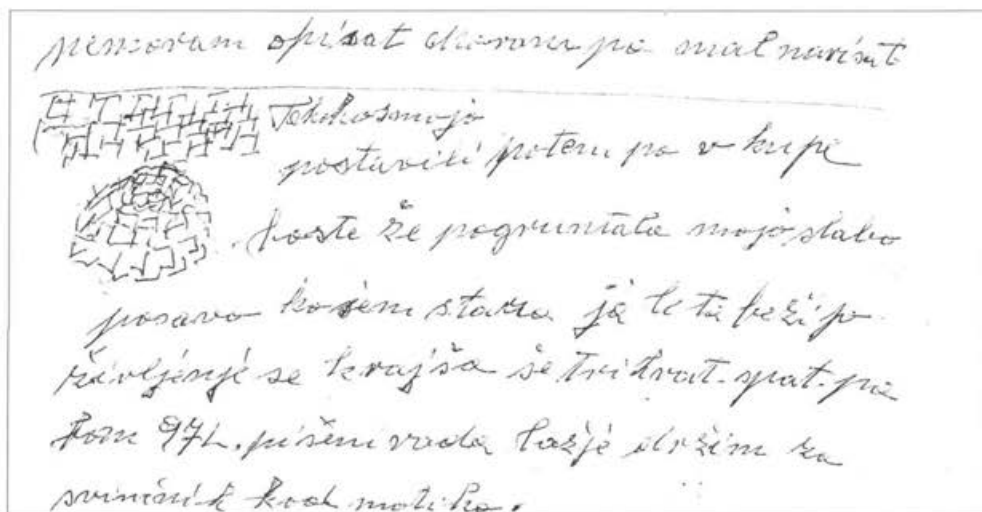 nemoram opisat skoraru pa mal narisat
Tekkosmojo
postavili potem pa v kupe
boste že pogruntala mojo slabo
posavo kosem stara ja leta beži jo
živlenje se krajša še trikrat. spat. pa
bom 97 L. pišem rada lažje držim za
svinčnik kod motiko.